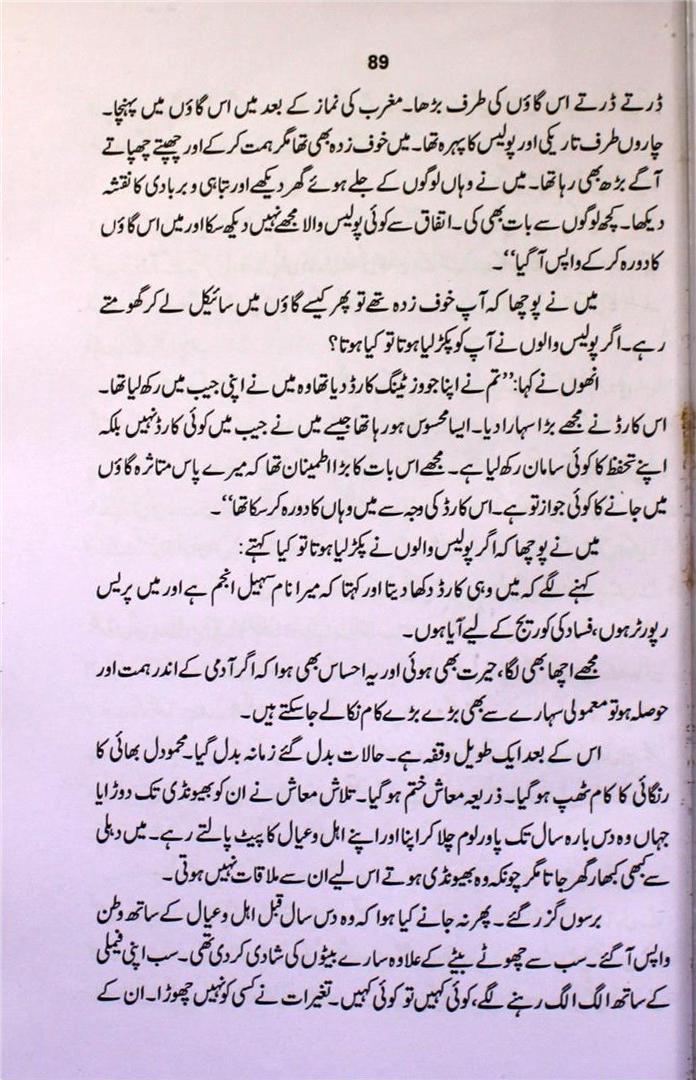 89
ڈرتے ڈرتے اس گاؤں کی طرف بڑھا۔ مغرب کی نماز کے بعد میں اس گاؤں میں پہنچا۔
چاروں طرف تاریکی اور پولیس کا پہرہ تھا۔ میں خوف زدہ بھی تھا مگر ہمت کر کے اور چھپتے چھپاتے
آگے بڑھ بھی رہا تھا۔ میں نے وہاں لوگوں کے جلے ہوئے گھر دیکھے اور تباہی و بربادی کا نقشہ
دیکھا۔ کچھ لوگوں سے بات بھی کی۔ اتفاق سے کوئی پولیس والا مجھے نہیں دیکھ سکا اور میں اس گاؤں
کا دورہ کر کے واپس آ گیا‘‘۔
میں نے پوچھا کہ آپ خوف زدہ تھے تو پھر کیسے گاؤں میں سائیکل لے کر گھومتے
رہے۔ اگر پولیس والوں نے آپ کو پکڑ لیا ہوتا تو کیا ہوتا؟
انھوں نے کہا: ’’تم نے اپنا جو وزیٹنگ کارڈ دیا تھا وہ میں نے اپنی جیب میں رکھ لیا تھا۔
اس کارڈ نے مجھے بڑا سہارا دیا۔ ایسا محسوس ہو رہا تھا جیسے میں نے جیب میں کوئی کارڈ نہیں بلکہ
اپنے تحفظ کا کوئی سامان رکھ لیا ہے۔ مجھے اس بات کا بڑا اطمینان تھا کہ میرے پاس متاثرہ گاؤں
میں جانے کا کوئی جواز تو ہے۔ اس کارڈ کی وجہ سے میں وہاں کا دورہ کر سکا تھا‘‘۔
میں نے پوچھا کہ اگر پولیس والوں نے پکڑ لیا ہوتا تو کیا کہتے:
کہنے لگے کہ میں وہی کارڈ دکھا دیتا اور کہتا کہ میرا نام سہیل انجم ہے اور میں پریس
رپورٹر ہوں، فساد کی کوریج کے لیے آیا ہوں۔
مجھے اچھا بھی لگا، حیرت بھی ہوئی اور یہ احساس بھی ہوا کہ اگر آدمی کے اندر ہمت اور
حوصلہ ہو تو معمولی سہارے سے بھی بڑے بڑے کام نکالے جا سکتے ہیں۔
اس کے بعد ایک طویل وقفہ ہے۔ حالات بدل گئے زمانہ بدل گیا۔ محمودل بھائی کا
رنگائی کا کام ٹھپ ہو گیا۔ ذریعہ معاش ختم ہو گیا۔ تلاش معاش نے ان کو بھیونڈی تک دوڑایا
جہاں وہ دس بارہ سال تک پاور لوم چلا کر اپنا اور اپنے اہل و عیال کا پیٹ پالتے رہے۔ میں دہلی
سے کبھی کبھار گھر جاتا مگر چونکہ وہ بھیونڈی ہوتے اس لیے ان سے ملاقات نہیں ہوتی۔
برسوں گزر گئے۔ پھر نہ جانے کیا ہوا کہ وہ دس سال قبل اہل و عیال کے ساتھ وطن
واپس آ گئے۔ سب سے چھوٹے بیٹے کے علاوہ سارے بیٹوں کی شادی کر دی تھی۔ سب اپنی فیملی
کے ساتھ الگ الگ رہنے لگے، کوئی کہیں تو کوئی کہیں۔ تغیرات نے کسی کو نہیں چھوڑا۔ ان کے